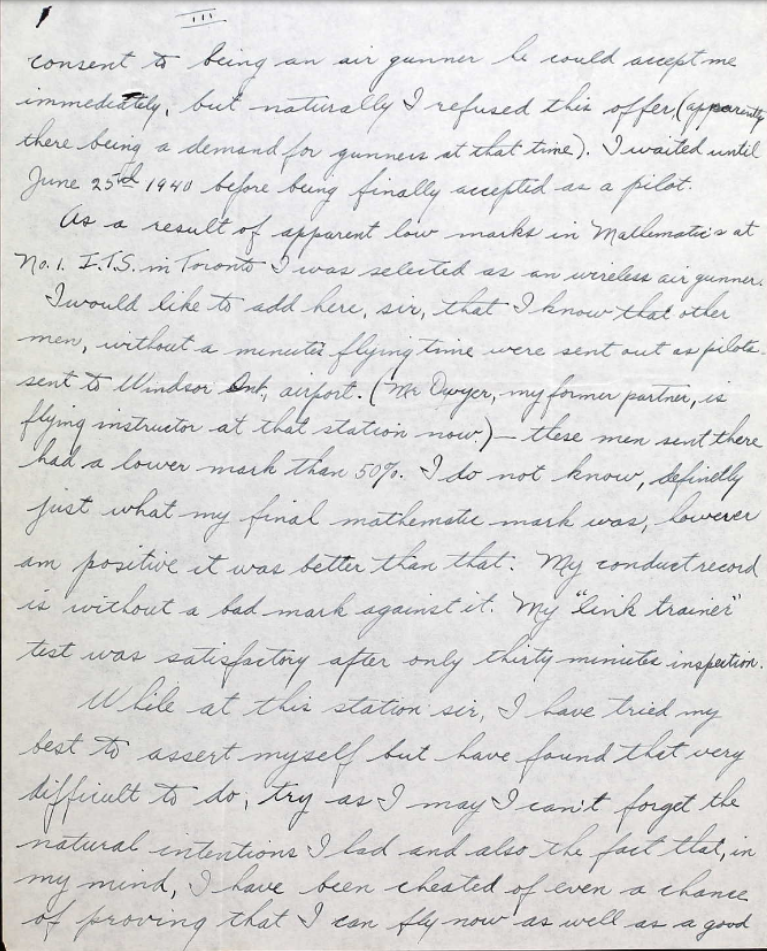 III
consent to being an air gunner he could accept me
immediately, but naturally I refused this offer, (apparently
there being a demand for gunners at that time). I waited until
June 25rd 1940 before being finally accepted as a pilot.
As a result of apparent low marks in Mathematic's at
No. 1. I.T.S. in Toronto I was selected as an wireless air gunner.
I would like to add here, sir, that I know that other
men, without a minutes flying time were sent out as pilots -
sent to Windsor Ont., airport. (Mr Dwyer, my former partner, is
flying instructor at that station now.) — these men sent there
had a lower mark than 50%. I do not know, definitly
just what my final mathematic mark was, however
am positive it was better than that. My conduct record
is without a bad mark against it. My "link trainer"
test was satisfactory after only thirty minutes inspection.
While at this station sir, I have tried my
best to assert myself but have found that very
difficult to do, try as I may I can't forget the
natural intentions I had and also the fact that, in
my mind, I have been cheated of even a chance
of proving that I can fly now as well as a good